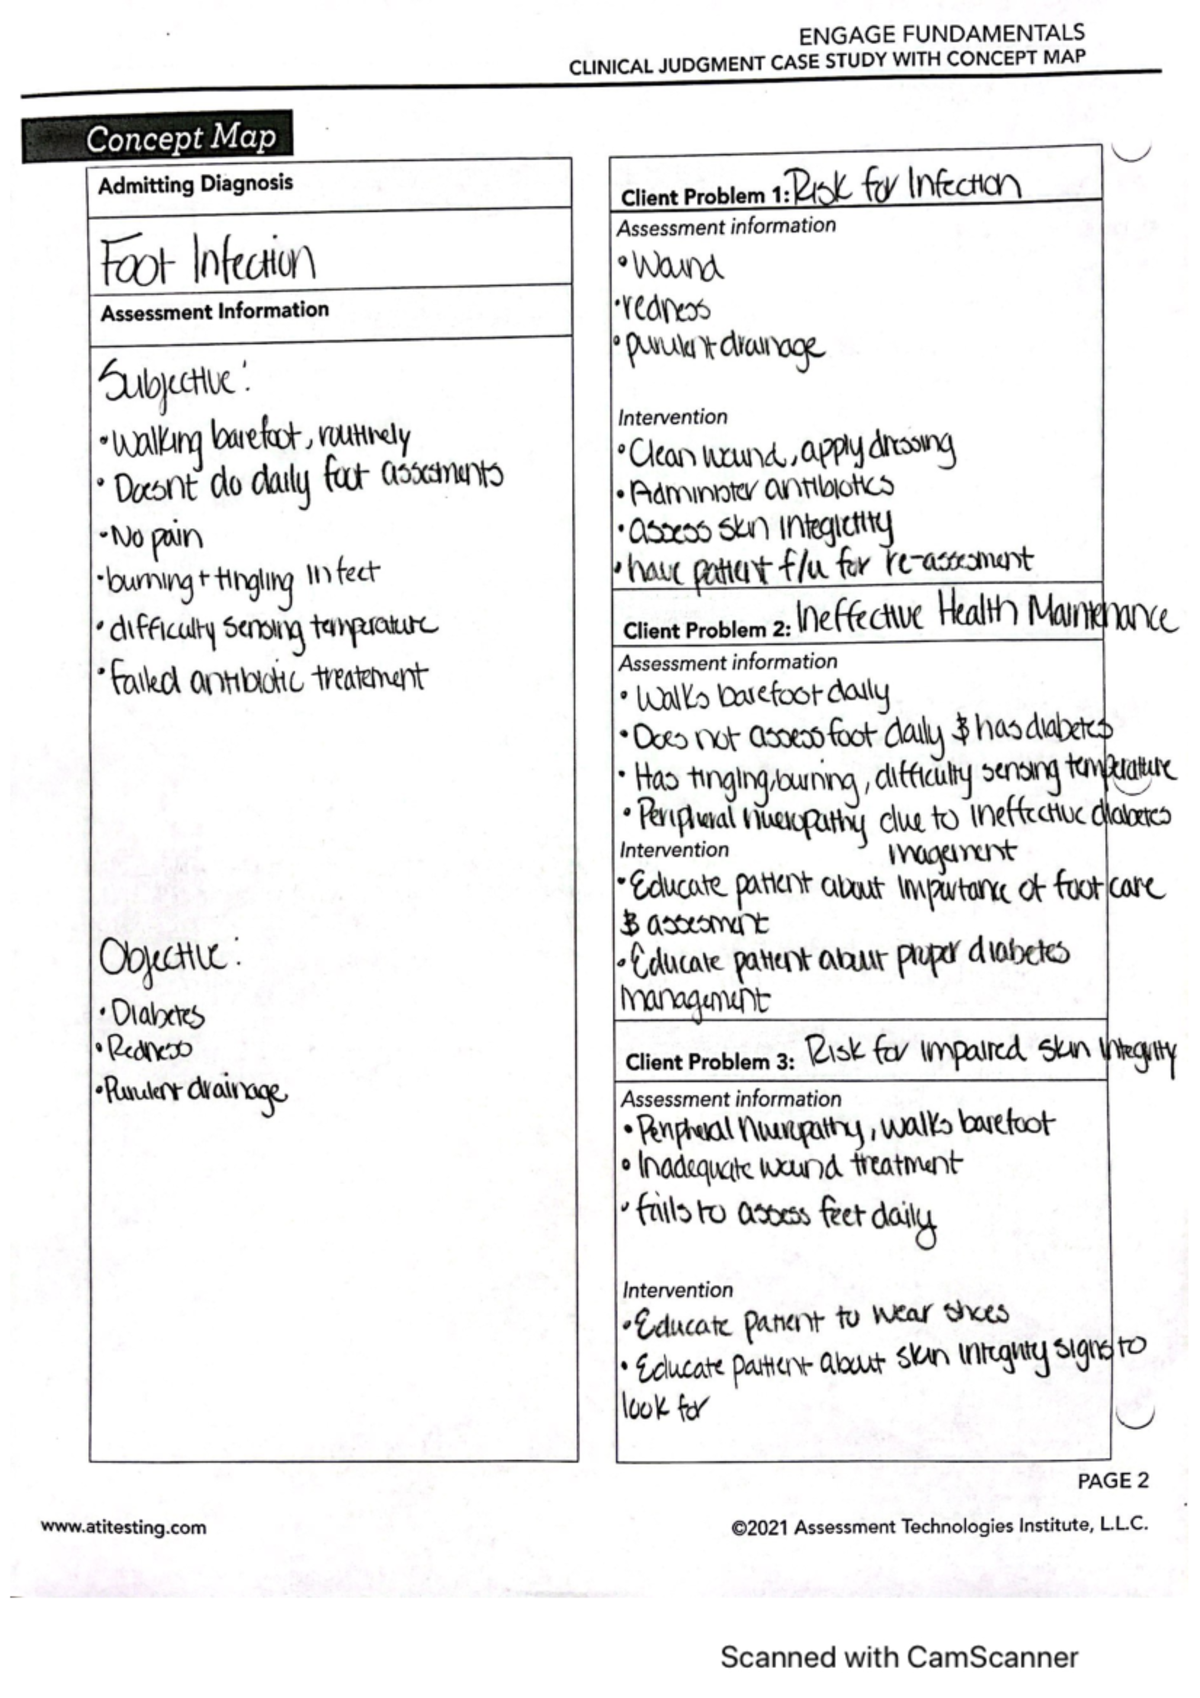 ENGAGE FUNDAMENTALS
CLINICAL JUDGMENT CASE STUDY WITH CONCEPT MAP
Concept Map
Admitting Diagnosis
Foot Infection
Assessment Information
Subjective:
•Walking barefoot, routinely
• Doesnt do daily foot assesments
•No pain
•burning + tingling in feet
•difficulty sensing temperature
•failed antibiotic treatement
Objective:
•Diabetes
•Redness
•Purulent drainage
Client Problem 1: Risk for Infection
Assessment information
•Wound
•redness
•purulent drainage
Intervention
•Clean wound, apply dressing
•Administer antibiotics
•assess skin integietity
•have patient f/u for re-assesment
Client Problem 2: Ineffective Health Maintenance
Assessment information
• Walks barefoot daily
•Does not assess foot daily & has diabetes
• Has tinging, burning, difficulty sensing temperature
• Peripheral nueropathy due to ineffective diabetes
Intervention
magement
•Educate patient about importance of foot care
& assesment
•Educate patient about proper diabetes
management
Client Problem 3: Risk for impaired skin integrity
Assessment information
•Peripheral Nueropathy, walks barefoot
• Inadequate wound treatment
• fails to assess feet daily
Intervention
•Educate patient to wear shoes
• Educate patient about skin integrity signs to
look for
PAGE 2
www.atitesting.com
©2021 Assessment Technologies Institute, L.L.C.
Scanned with CamScanner